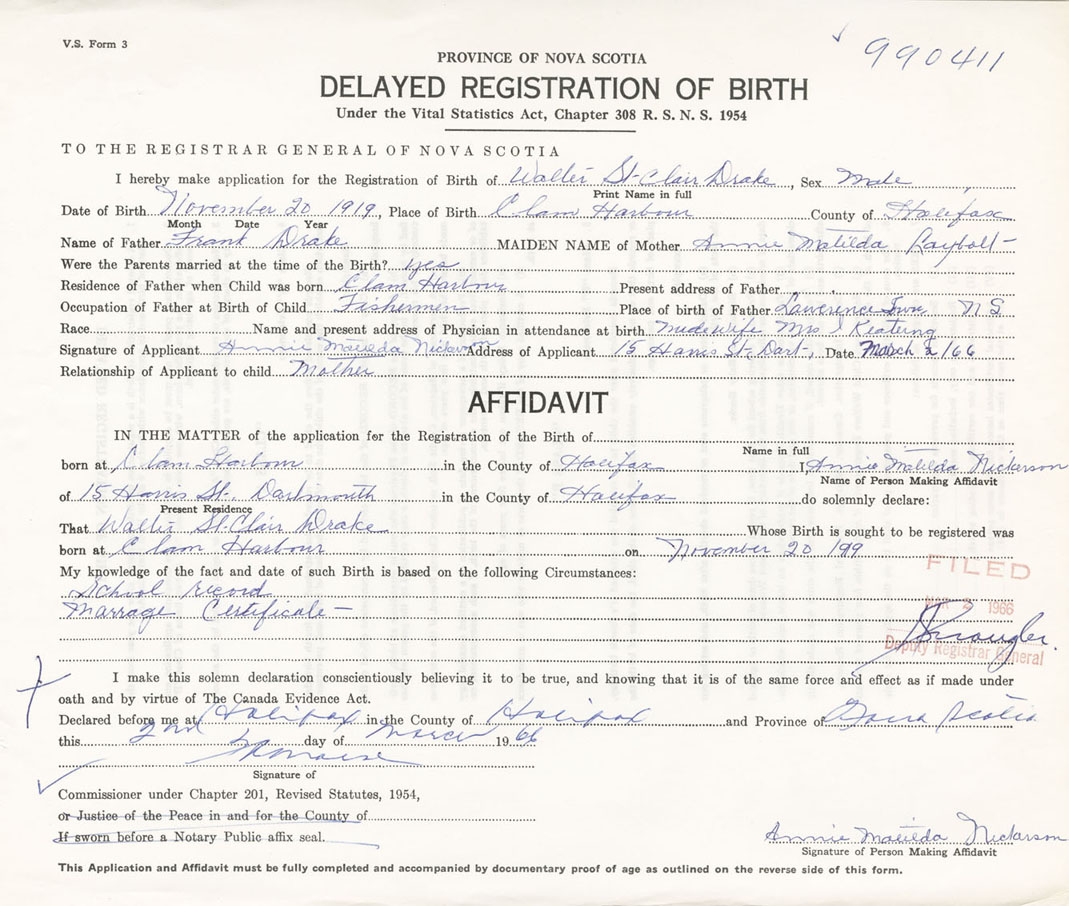 V.S. Form 3
990411
PROVINCE OF NOVA SCOTIA
DELAYED REGISTRATION OF BIRTH
Under the Vital Statistics Act, Chapter 308 R. S. N. S. 1954
TO THE REGISTRAR GENERAL OF NOVA SCOTIA
I hereby make application for the Registration of Birth of Walter St-Clair Drake, Sex Male
Print Name in full
Date of Birth November 20 1919, Place of Birth Clam Harbour County of Halifax
Month Date Year
Name of Father Frank Drake MAIDEN NAME of Mother Annie Matilda
Were the Parents married at the time of the Birth? yes
Residence of Father when Child was born Clam Harbour Present address of Father
Occupation of Father at Birth of Child Fishermen Place of birth of Father Lawrence Town N S
Race Name and present address of Physician in attendance at birth Midewife Mrs Keating
Signature of Applicant Annie Matilda Nickerson Address of Applicant 15 Harris St. Dart-, Date March 2/66
Relationship of Applicant to child Mother
AFFIDAVIT
IN THE MATTER of the application for the Registration of the Birth of
Name in full
born at Clam Harbour in the County of Halifax I, Annie Matilda Nickerson
Name of Person Making Affidavit
of 15 Harris St. Dartmouth in the County of Halifax do solemnly declare:
Present Residence
That Walter St-Clair Drake Whose Birth is sought to be registered was
born at Clam Harbour on November 20 199
My knowledge of the fact and date of such Birth is based on the following Circumstances:
School record
Marrage Certificate -
FILED
MAR 2 1966
Deputy Registrar General
I make this solemn declaration conscientiously believing it to be true, and knowing that it is of the same force and effect as if made under
oath and by virtue of The Canada Evidence Act.
Declared before me at Halifax in the County of Halifax and Province of Nova Scotia
this 2nd day of March 1966
Signature of
Commissioner under Chapter 201, Revised Statutes, 1954,
or Justice of the Peace in and for the County of
If sworn before a Notary Public affix seal.
Annie Matilda Nickerson
Signature of Person Making Affidavit
This Application and Affidavit must be fully completed and accompanied by documentary proof of age as outlined on the reverse side of this form.